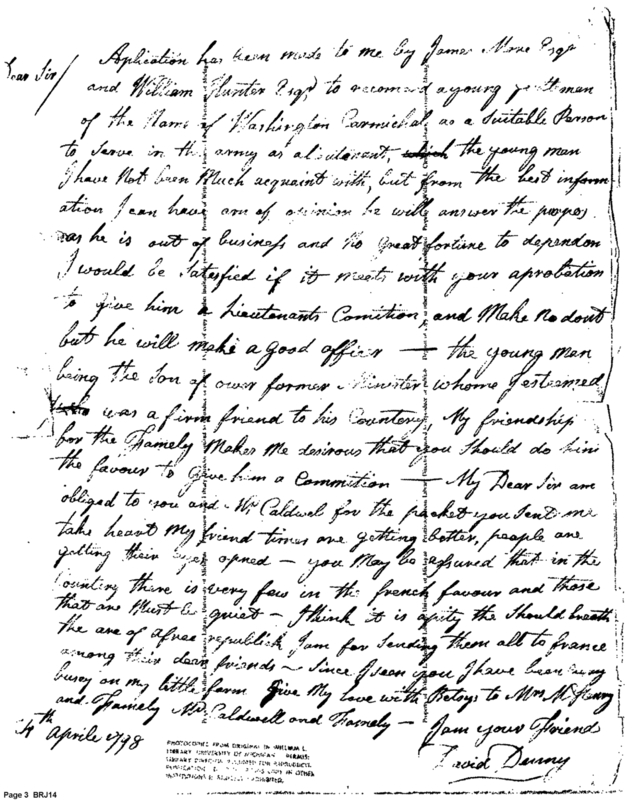 Dear Sir/
Aplication has been made to me by James More Esqr
and William Hunter Esqr to recomend a young gentleman
of the Name of Washington Carmichal as a Suitable Person
to Serve in the army as a Lieutenant, which the young man
I have Not been Much acquaint with, but from the best inform-
ation I can have am of opinion he will answer the purpos
as he is out of business and No Great fortune to depend on
I would be Satesfied if it meets with your aprobation
to Give him a Lieutenants Comition, and Make No dout
but he will make a Good officer — the young man
being the Son of ower former Minister whome I esteemed
who was a firm friend to his Countery, My friendship
for the Famely Makes Me desirous that you Should do him
the favour to Give him a Commition — My Dear Sir am
obliged to you and Mr Caldwel for the packet you Sent me
take heart My friend times are getting better, people are
getting their eyes opned — you May be assured that in the
Countery there is very few in the french favour and those
that are Must be quiet — I think it is a pity the Should breath
the are of a free republick I am for Sending them all to france
among their dear friends — Since I seen you I have been very
busey on my little farm Give My love with Betsys to Mrs McHenry
and Famely Mr Caldwell and Famely — I am your Friend
4th Aprile 1798
David Denny
PHOTOCOPIED FROM ORIGINAL IN WILLIAM L.
LIBRARY UNIVERSITY OF MICHIGAN
Page 3 BRJ14